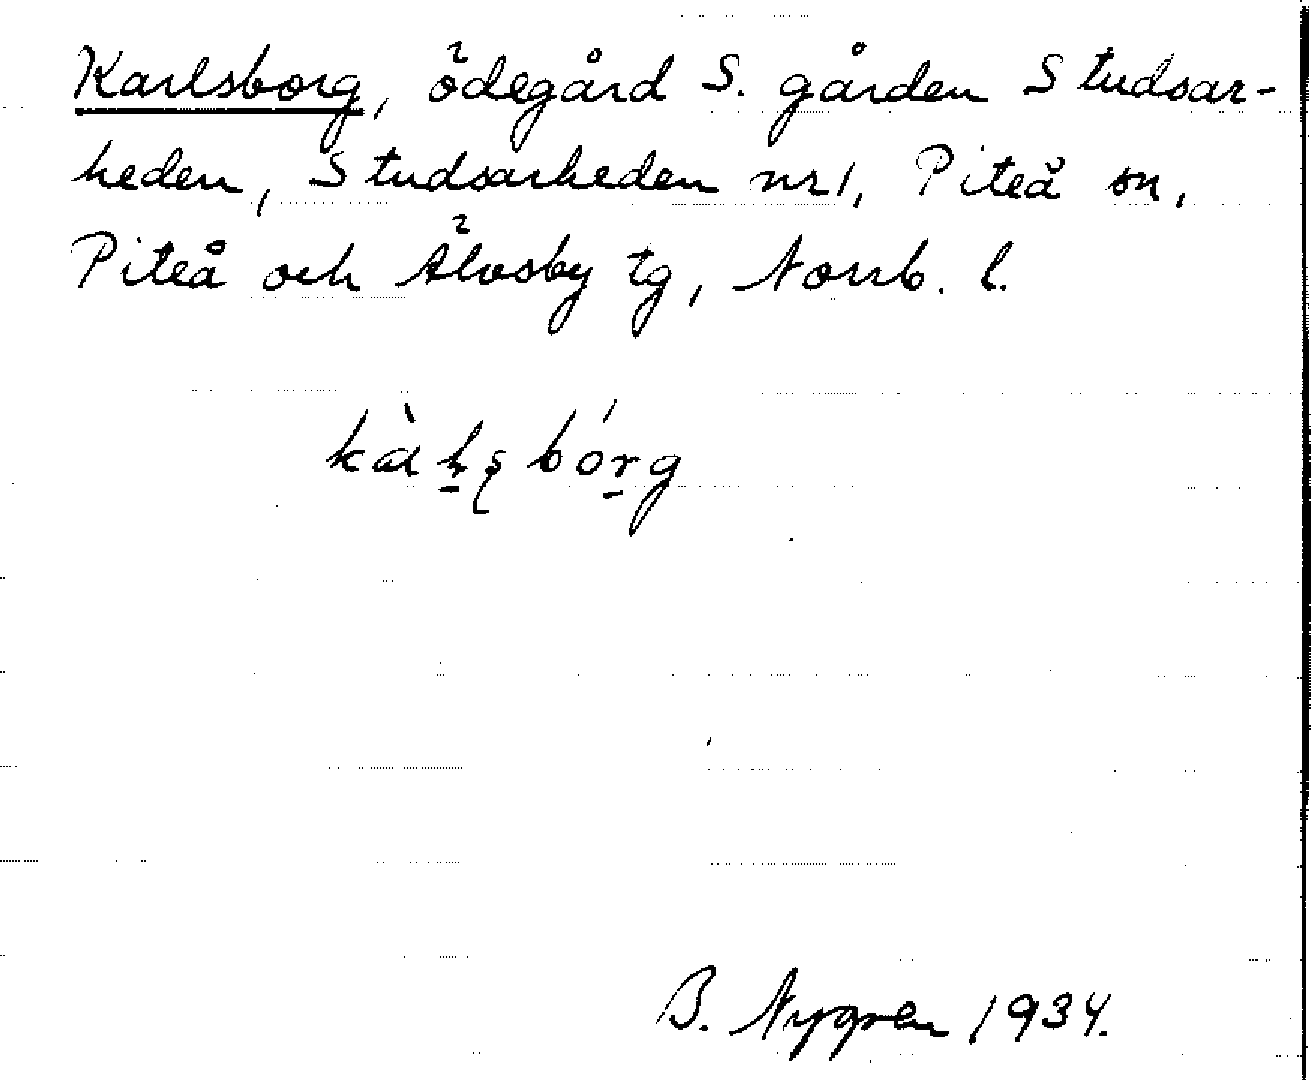 Karlsborg, ödegård S. gården Studsar-
heden, Studsarheden nr 1, Piteå sn,
Piteå och Älvsby tg, Norrb. l.
B. Nygren 1934.